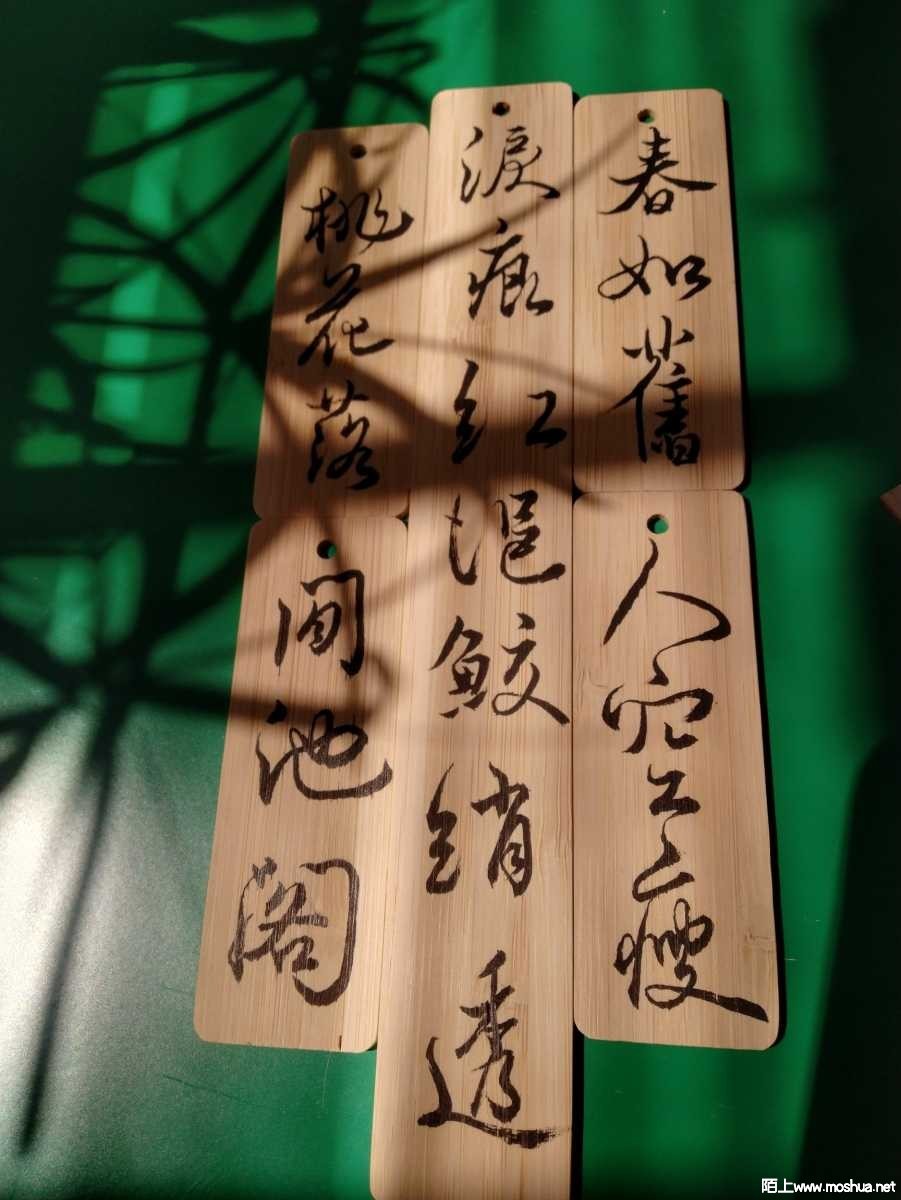 春如舊
人空瘦
淚痕红浥鮫绡透
桃花落
閒池阁
陌上www.moshua.net